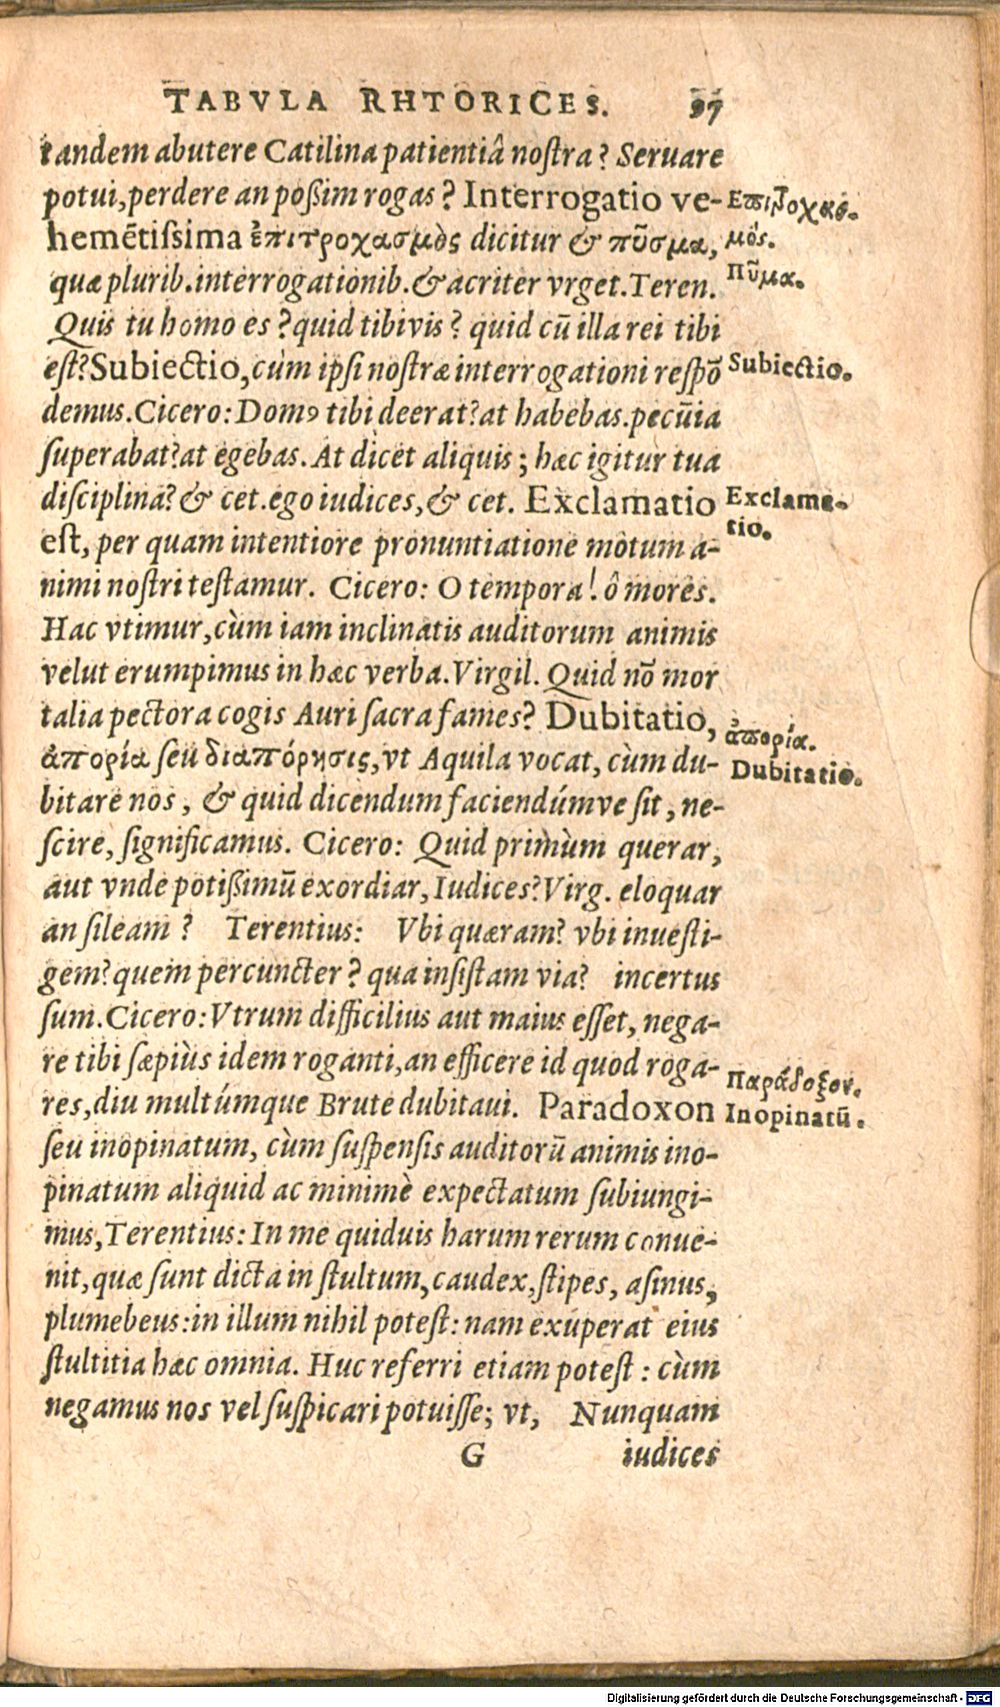 TABVLA RHTORICES. 97
tandem abutere Catilina patientiâ nostra? Seruare
potui, perdere an poßim rogas? Interrogatio ve-
hemẽtissima ἐπιτροχασμὸς dicitur & πῦσμα,
quæ plurib. interrogationib. & acriter vrget. Teren.
Quis tu homo es? quid tibi vis? quid cũ illa rei tibi
est? Subiectio, cùm ipsi nostræ interrogationi respõ
demus. Cicero: Domꝰ tibi deerat? at habebas. pecũia
superabat? at egebas. At dicet aliquis; hæc igitur tua
disciplina? & cet. ego iudices, & cet. Exclamatio
est, per quam intentiore pronuntiatione motum a-
nimi nostri testamur. Cicero: O tempora! ô mores.
Hac vtimur, cùm iam inclinatis auditorum animis
velut erumpimus in hæc verba. Virgil. Quid nõ mor
talia pectora cogis Auri sacra fames? Dubitatio,
ἀπορία seu διαπόρησις, vt Aquila vocat, cùm du-
bitare nos, & quid dicendum faciendúmve sit, ne-
scire, significamus. Cicero: Quid primùm querar,
aut vnde potißimũ exordiar, Iudices? Virg. eloquar
an sileam? Terentius: Vbi quæram? vbi inuesti-
gem? quem percuncter? qua insistam via? incertus
sum. Cicero: Vtrum difficilius aut maius esset, nega-
re tibi sæpiùs idem roganti, an efficere id quod roga-
res, diu multúmque Brute dubitaui. Paradoxon
seu inopinatum, cùm suspensis auditorũ animis ino-
pinatum aliquid ac minimè expectatum subiungi-
mus, Terentius: In me quiduis harum rerum conue-
nit, quæ sunt dicta in stultum, caudex, stipes, asinus,
plumebeus: in illum nihil potest: nam exuperat eius
stultitia hæc omnia. Huc referri etiam potest: cùm
negamus nos vel suspicari potuisse; vt, Nunquam
G iudices
Επιτροχασ-
μός.
Πῦμα.
Subiectio.
Exclama-
tio.
ἀπορία.
Dubitatio.
Παράδοξον.
Inopinatũ.
Digitalisierung gefördert durch die Deutsche Forschungsgemeinschaft - DFG